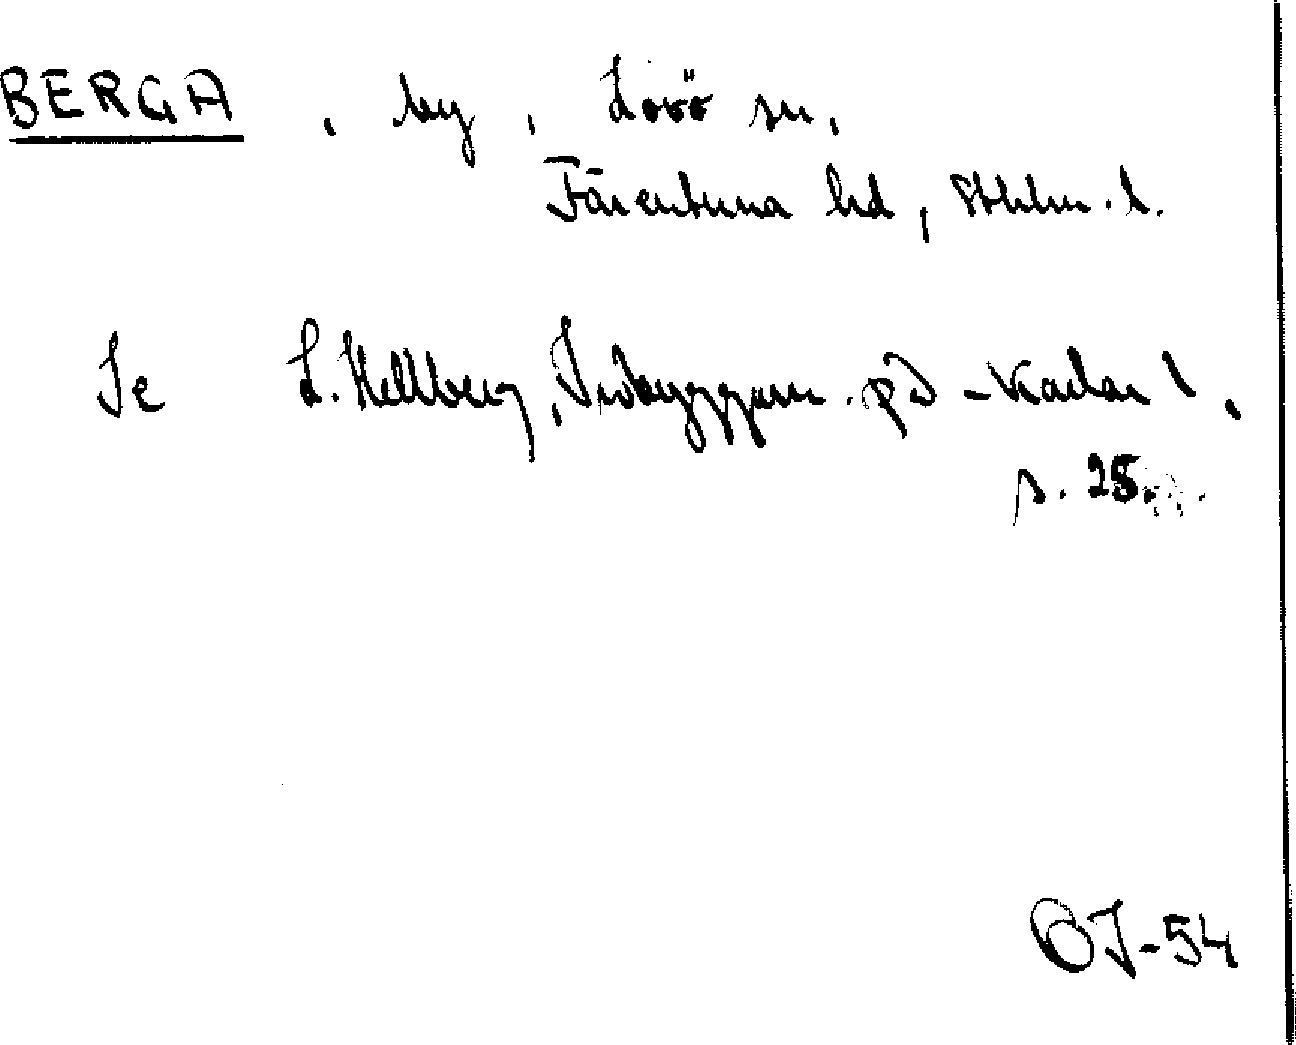 BERGA, by, Lovö sn,
Färentuna hd, Sthlm. l.
Se L. Hellberg, Inbyggarn. på -karlar 1,
s. 25.
OJ-54